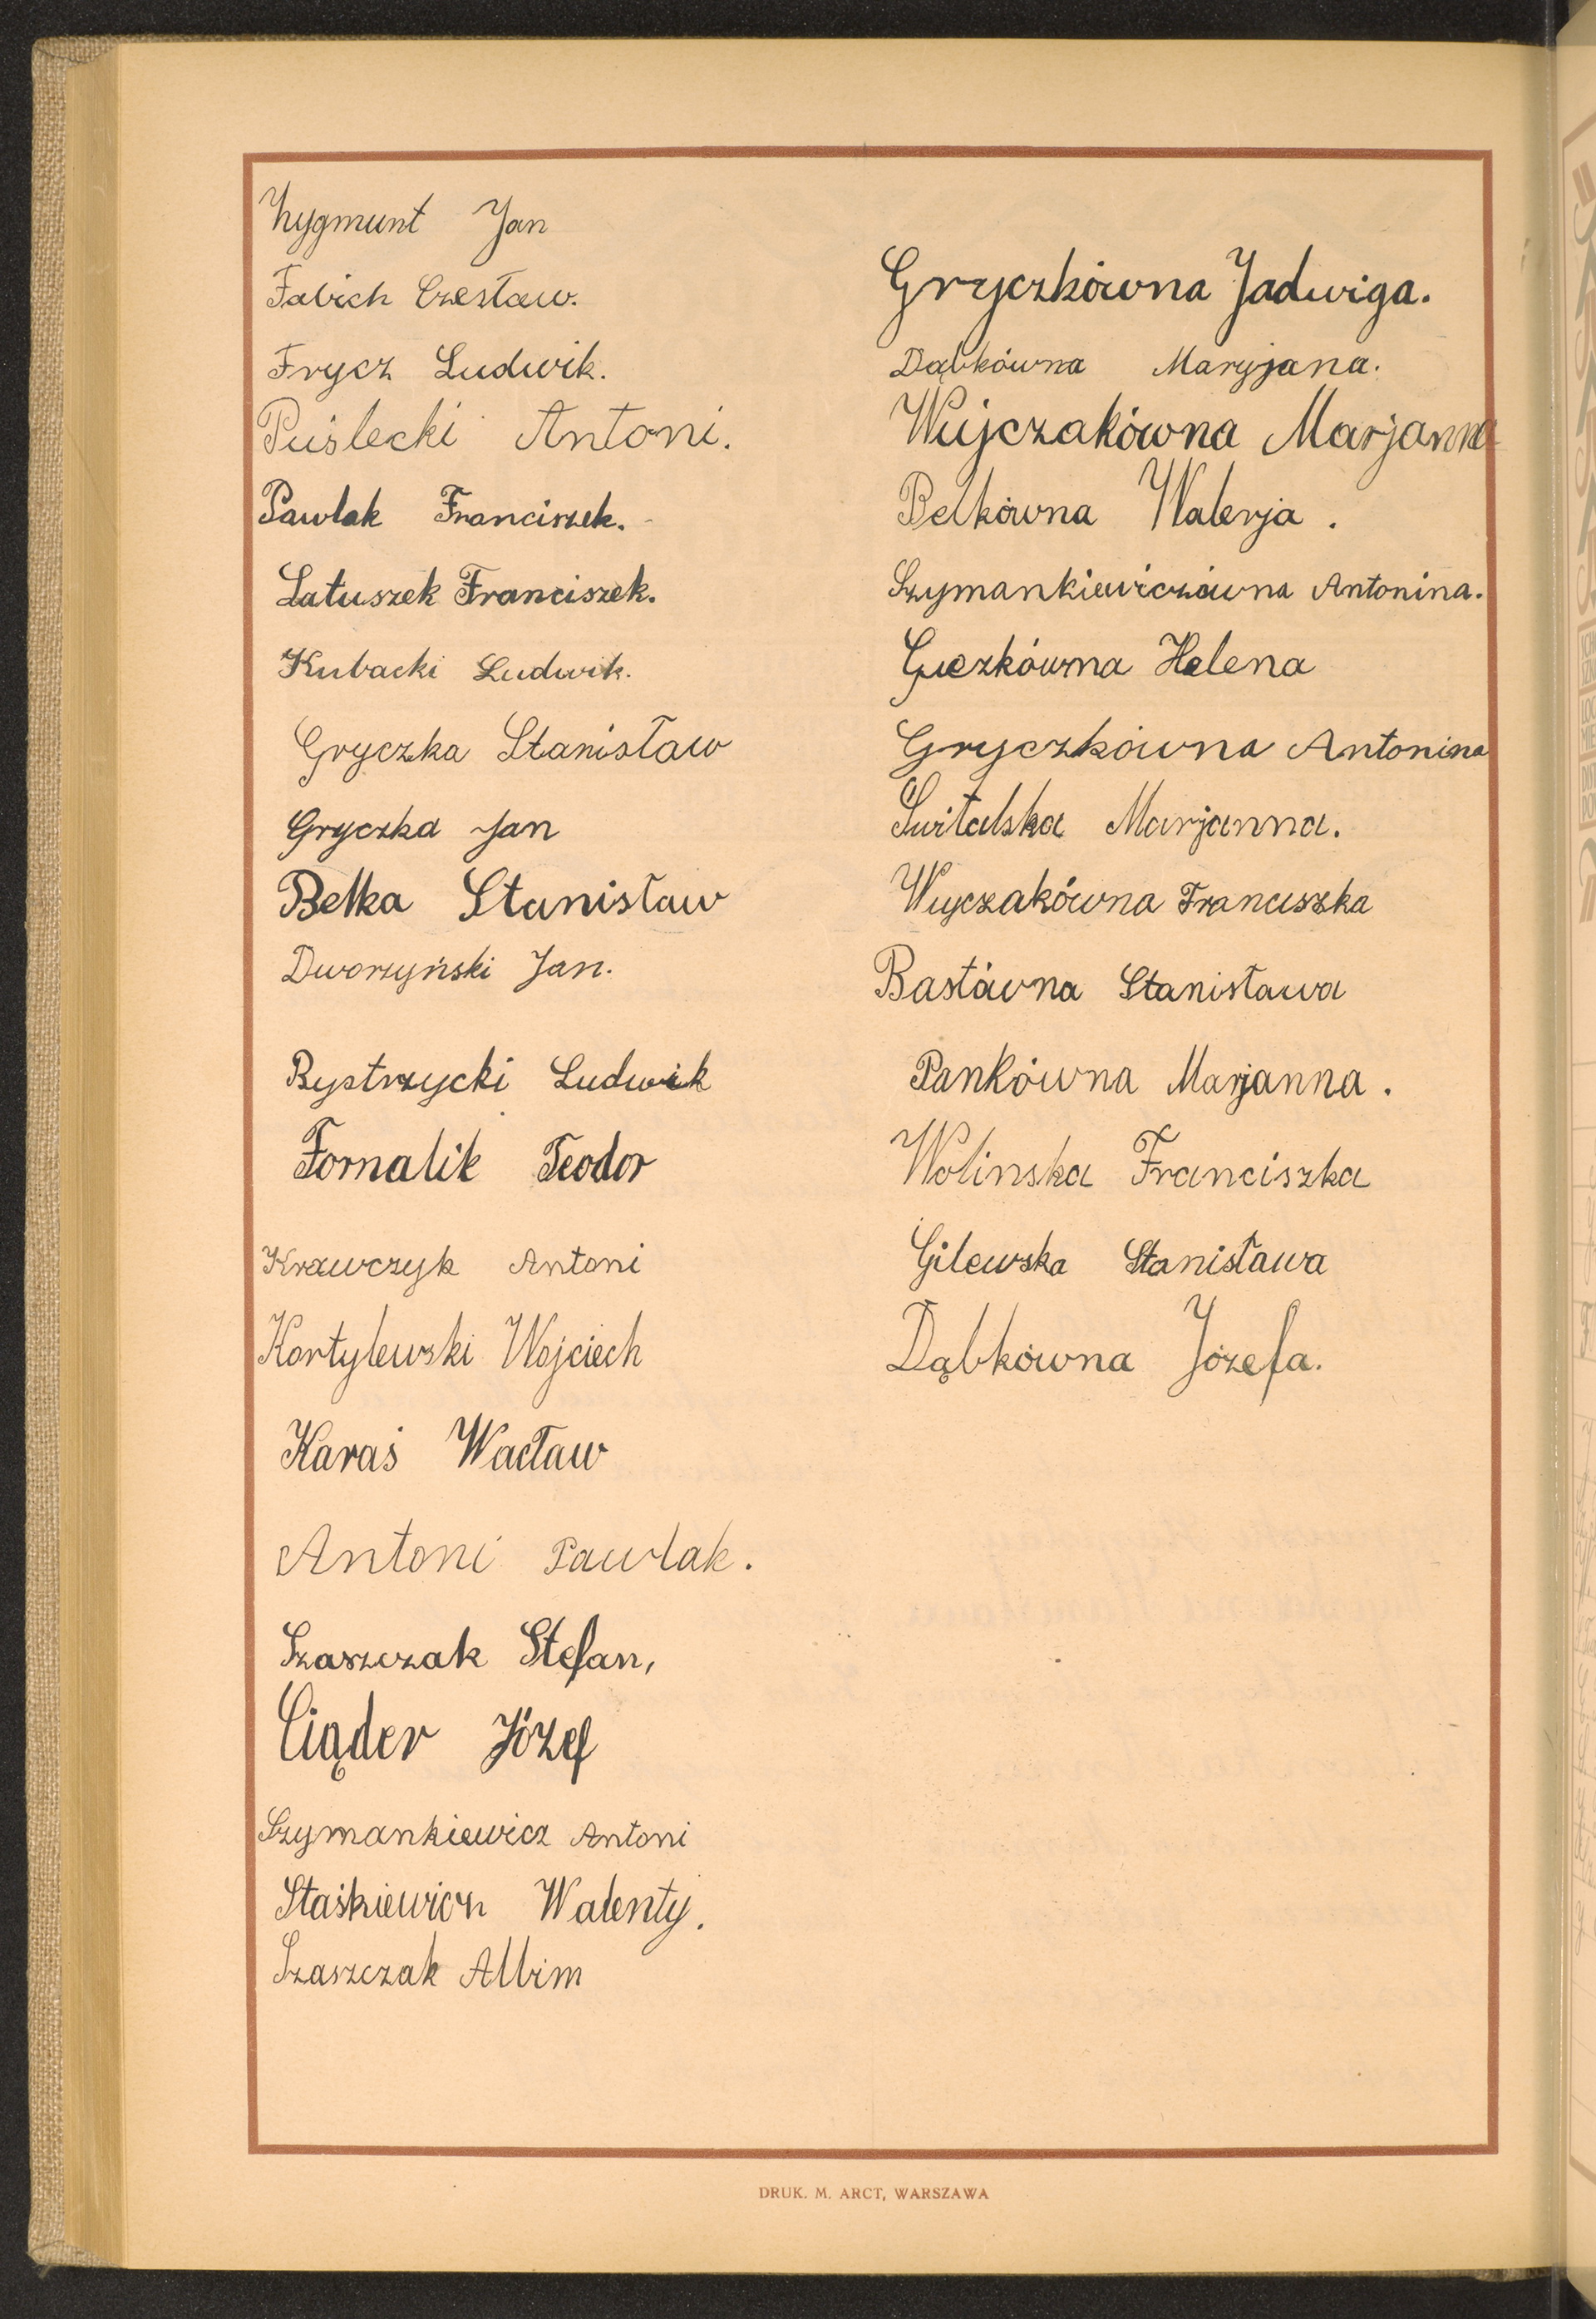 Zygmunt Jan
Fabich Czesław.
Frycz Ludwik.
Puślecki Antoni.
Pawlak Franciszek.
Latuszek Franciszek.
Kubacki Ludwik.
Gryczka Stanisław
Gryczka Jan
Belka Stanisław
Dworzyński Jan.
Bystrzycki Ludwik
Fornalik Teodor
Krawczyk Antoni
Kortylewski Wojciech
Karaś Wacław
Antoni Pawlak.
Szaszczak Stefan,
Ciąder Józef
Szymankiewicz Antoni
Staśkiewicz Walenty.
Szaszczak Albin
Gryczkówna Jadwiga.
Dąbkówna Maryjana.
Wujczakówna Marjanna
Belkówna Walerja.
Szymankiewiczówna Antonina.
Guczkówna Helena
Gryczkówna Antonina
Świtalska Marjanna.
Wujczakówna Franciszka
Bastówna Stanisława
Pankówna Marjanna.
Wolinska Franciszka
Gilewska Stanisława
Dąbkówna Józefa.
DRUK. M. ARCT, WARSZAWA